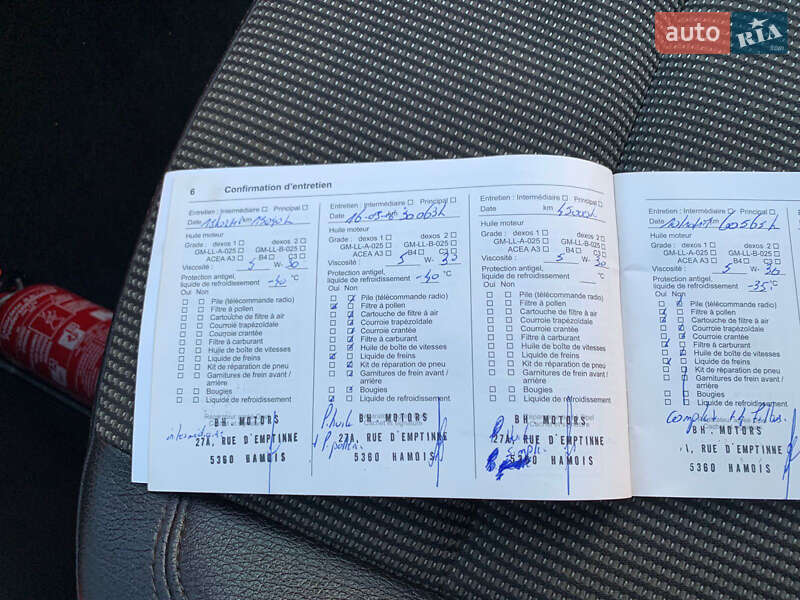 auto RIA.com
6 Confirmation d'entretien
Entretien : Intermédiaire Principal
Date km
Huile moteur
Grade : dexos 1 dexos 2
GM-LL-A-025 GM-LL-B-025
ACEA A3 B4 C3
Viscosité : 5 W- 30
Protection antigel,
liquide de refroidissement -40 °C
Oui Non
Pile (télécommande radio)
Filtre à pollen
Cartouche de filtre à air
Courroie trapézoïdale
Courroie crantée
Filtre à carburant
Huile de boîte de vitesses
Liquide de freins
Kit de réparation de pneu
Garnitures de frein avant /
arrière
Bougies
Liquide de refroidissement
BH MOTORS
27A, RUE D'EMPTINNE
5360 HAMOIS
Entretien : Intermédiaire Principal
Date 30063k
Huile moteur
Grade : dexos 1 dexos 2
GM-LL-A-025 GM-LL-B-025
ACEA A3 B4 C3
Viscosité : 5 W- 30
Protection antigel,
liquide de refroidissement -40 °C
Oui Non
Pile (télécommande radio)
Filtre à pollen
Cartouche de filtre à air
Courroie trapézoïdale
Courroie crantée
Filtre à carburant
Huile de boîte de vitesses
Liquide de freins
Kit de réparation de pneu
Garnitures de frein avant /
arrière
Bougies
Liquide de refroidissement
BH MOTORS
27A, RUE D'EMPTINNE
5360 HAMOIS
Entretien : Intermédiaire Principal
Date km
Huile moteur
Grade : dexos 1 dexos 2
GM-LL-A-025 GM-LL-B-025
ACEA A3 B4 C3
Viscosité : 5 W- 30
Protection antigel,
liquide de refroidissement °C
Oui Non
Pile (télécommande radio)
Filtre à pollen
Cartouche de filtre à air
Courroie trapézoïdale
Courroie crantée
Filtre à carburant
Huile de boîte de vitesses
Liquide de freins
Kit de réparation de pneu
Garnitures de frein avant /
arrière
Bougies
Liquide de refroidissement
BH MOTORS
27A, RUE D'EMPTINNE
5360 HAMOIS
Entretien : Intermédiaire Principal
Date
Huile moteur
Grade : dexos 1 dexos 2
GM-LL-A-025 GM-LL-B-025
ACEA A3 B4 C3
Viscosité : 5 W- 30
Protection antigel,
liquide de refroidissement -35 °C
Oui Non
Pile (télécommande radio)
Filtre à pollen
Cartouche de filtre à air
Courroie trapézoïdale
Courroie crantée
Filtre à carburant
Huile de boîte de vitesses
Liquide de freins
Kit de réparation de pneu
Garnitures de frein avant /
arrière
Bougies
Liquide de refroidissement
BH MOTORS
RUE D'EMPTINNE
5360 HAMOIS